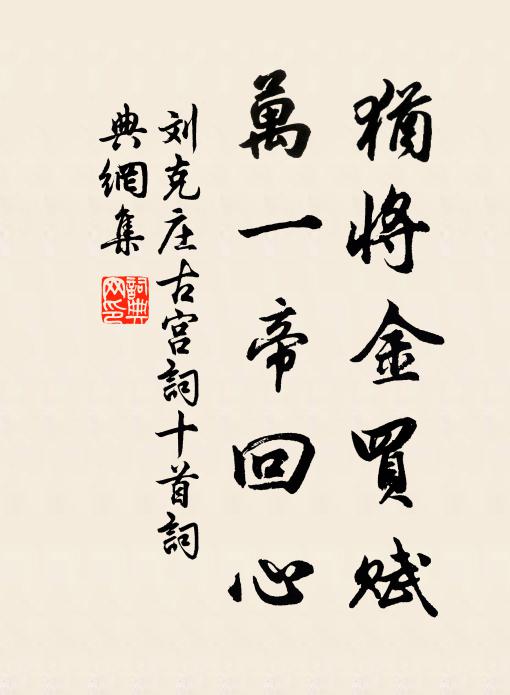 猶將金買賦
萬一帝回心
刘克庄古宫詞十首詞
典網集
詞典
网印